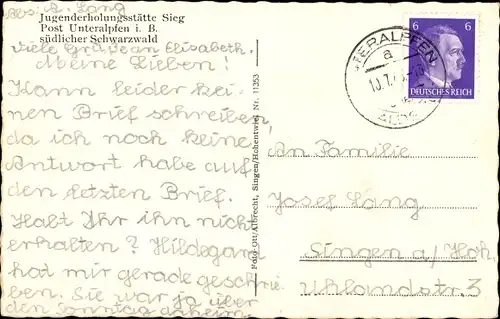 Abs. A. Lang
Jugenderholungsstätte Sieg
Post Unteralpfen i. B.
südlicher Schwarzwald
Viele Grüße an Elisabeth.
Meine Lieben!
Kann leider kei-
nen Brief schreiben
da ich noch keine
Antwort habe auf
den letzten Brief.
Habt Ihr ihn nicht
erhalten? Hildegard
hat mir gerade geschrie
ben. Sie war ja über
den Sonntag daheim
Foto-Ott/Albrecht, Singen/Hohentwiel Nr. 11253
TERALPFEN
a
10.7.
6 6
DEUTSCHES REICH
An Familie
Josef Lang
Singen a/Hoh.
Uhlandstr. 3